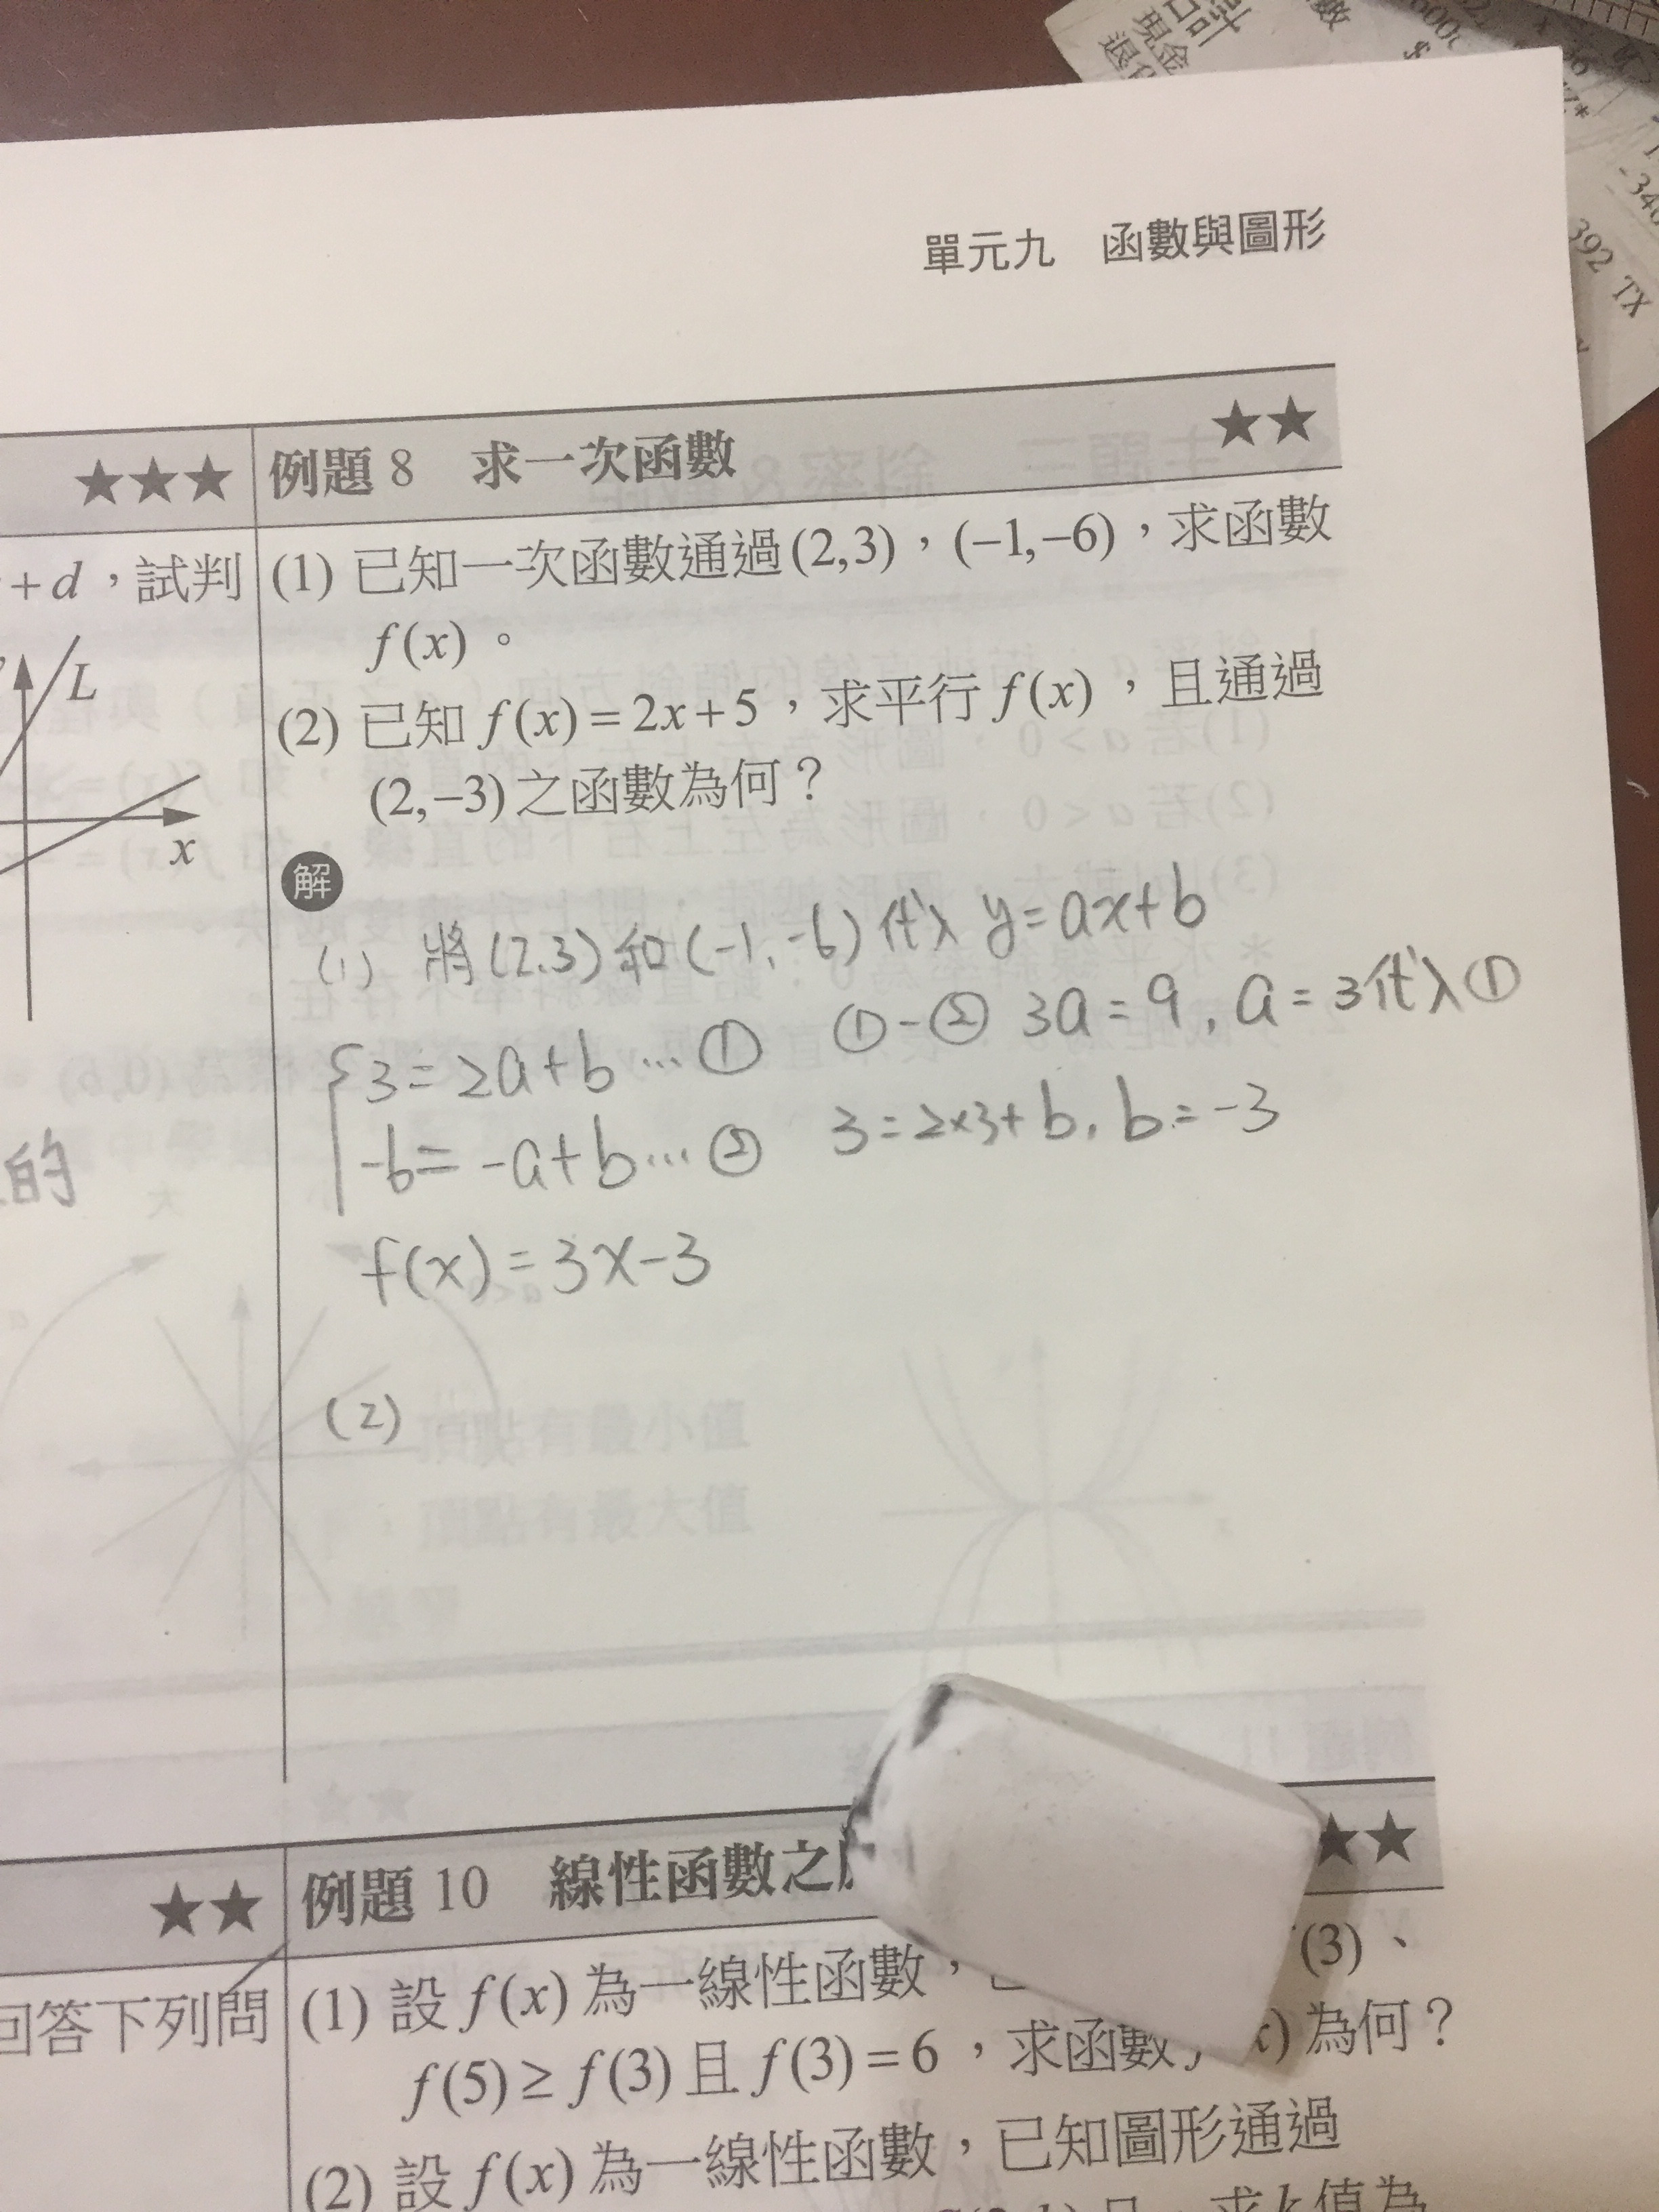 口計
現金
數
$
392 TX
單元九　函數與圖形
★★★
+d，試判
L
x
的
例題 8　求一次函數　★★
(1) 已知一次函數通過(2,3)，(−1,−6)，求函數
f(x)。
(2) 已知 f(x)=2x+5，求平行 f(x)，且通過
(2,−3)之函數為何？
解
(1) 將(2,3)和(-1,-6)代入 y=ax+b
3=2a+b…①　①-②　3a=9, a=3代入①
-6=-a+b…②　3=2×3+b, b=-3
f(x)=3x-3
(2)
★★
回答下列問
例題 10　線性函數之　★★
(1) 設 f(x) 為一線性函數，(3)、
f(5)≥f(3)且 f(3)=6，求函數 x)為何？
(2) 設 f(x) 為一線性函數，已知圖形通過
求 k 值為